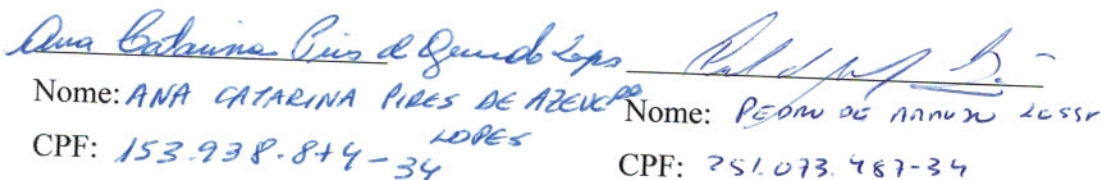 Ana Catarina Pires de Azevedo Lopes
Nome: ANA CATARINA PIRES DE AZEVEDO LOPES
CPF: 153.938.874-34
Nome: PEDRO DE ARAUJO LESSA
CPF: 251.073.487-34